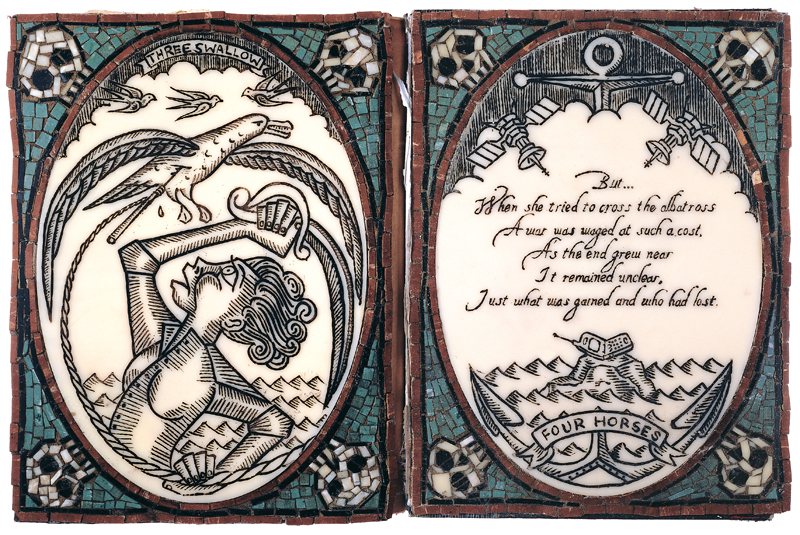 THREE SWALLOW
But...
When she tried to cross the albatross
A war was waged at such a cost,
As the end grew near
It remained unclear,
Just what was gained and who had lost.
FOUR HORSES